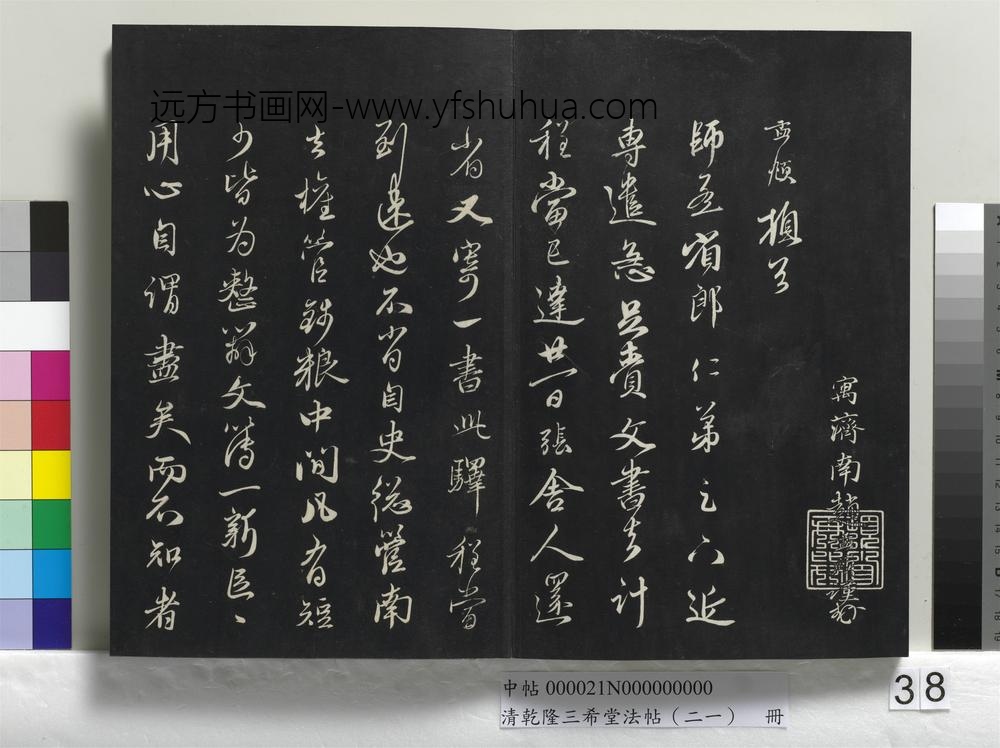 远方书画网-www.yfshuhua.com
寓濟南趙孟頫謹封
孟頫頓首
師孟省郎仁弟足下近
專遣急足賷文書去計
程當已達廿一日張舍人還
者又寄一書此驛程當
到速也不肖自史總管南
去權管錢粮中間凡有短
少皆為整辦文簿一新區〻
用心自謂盡矣而不知者
中帖 000021N000000000
清乾隆三希堂法帖（二一） 冊
38